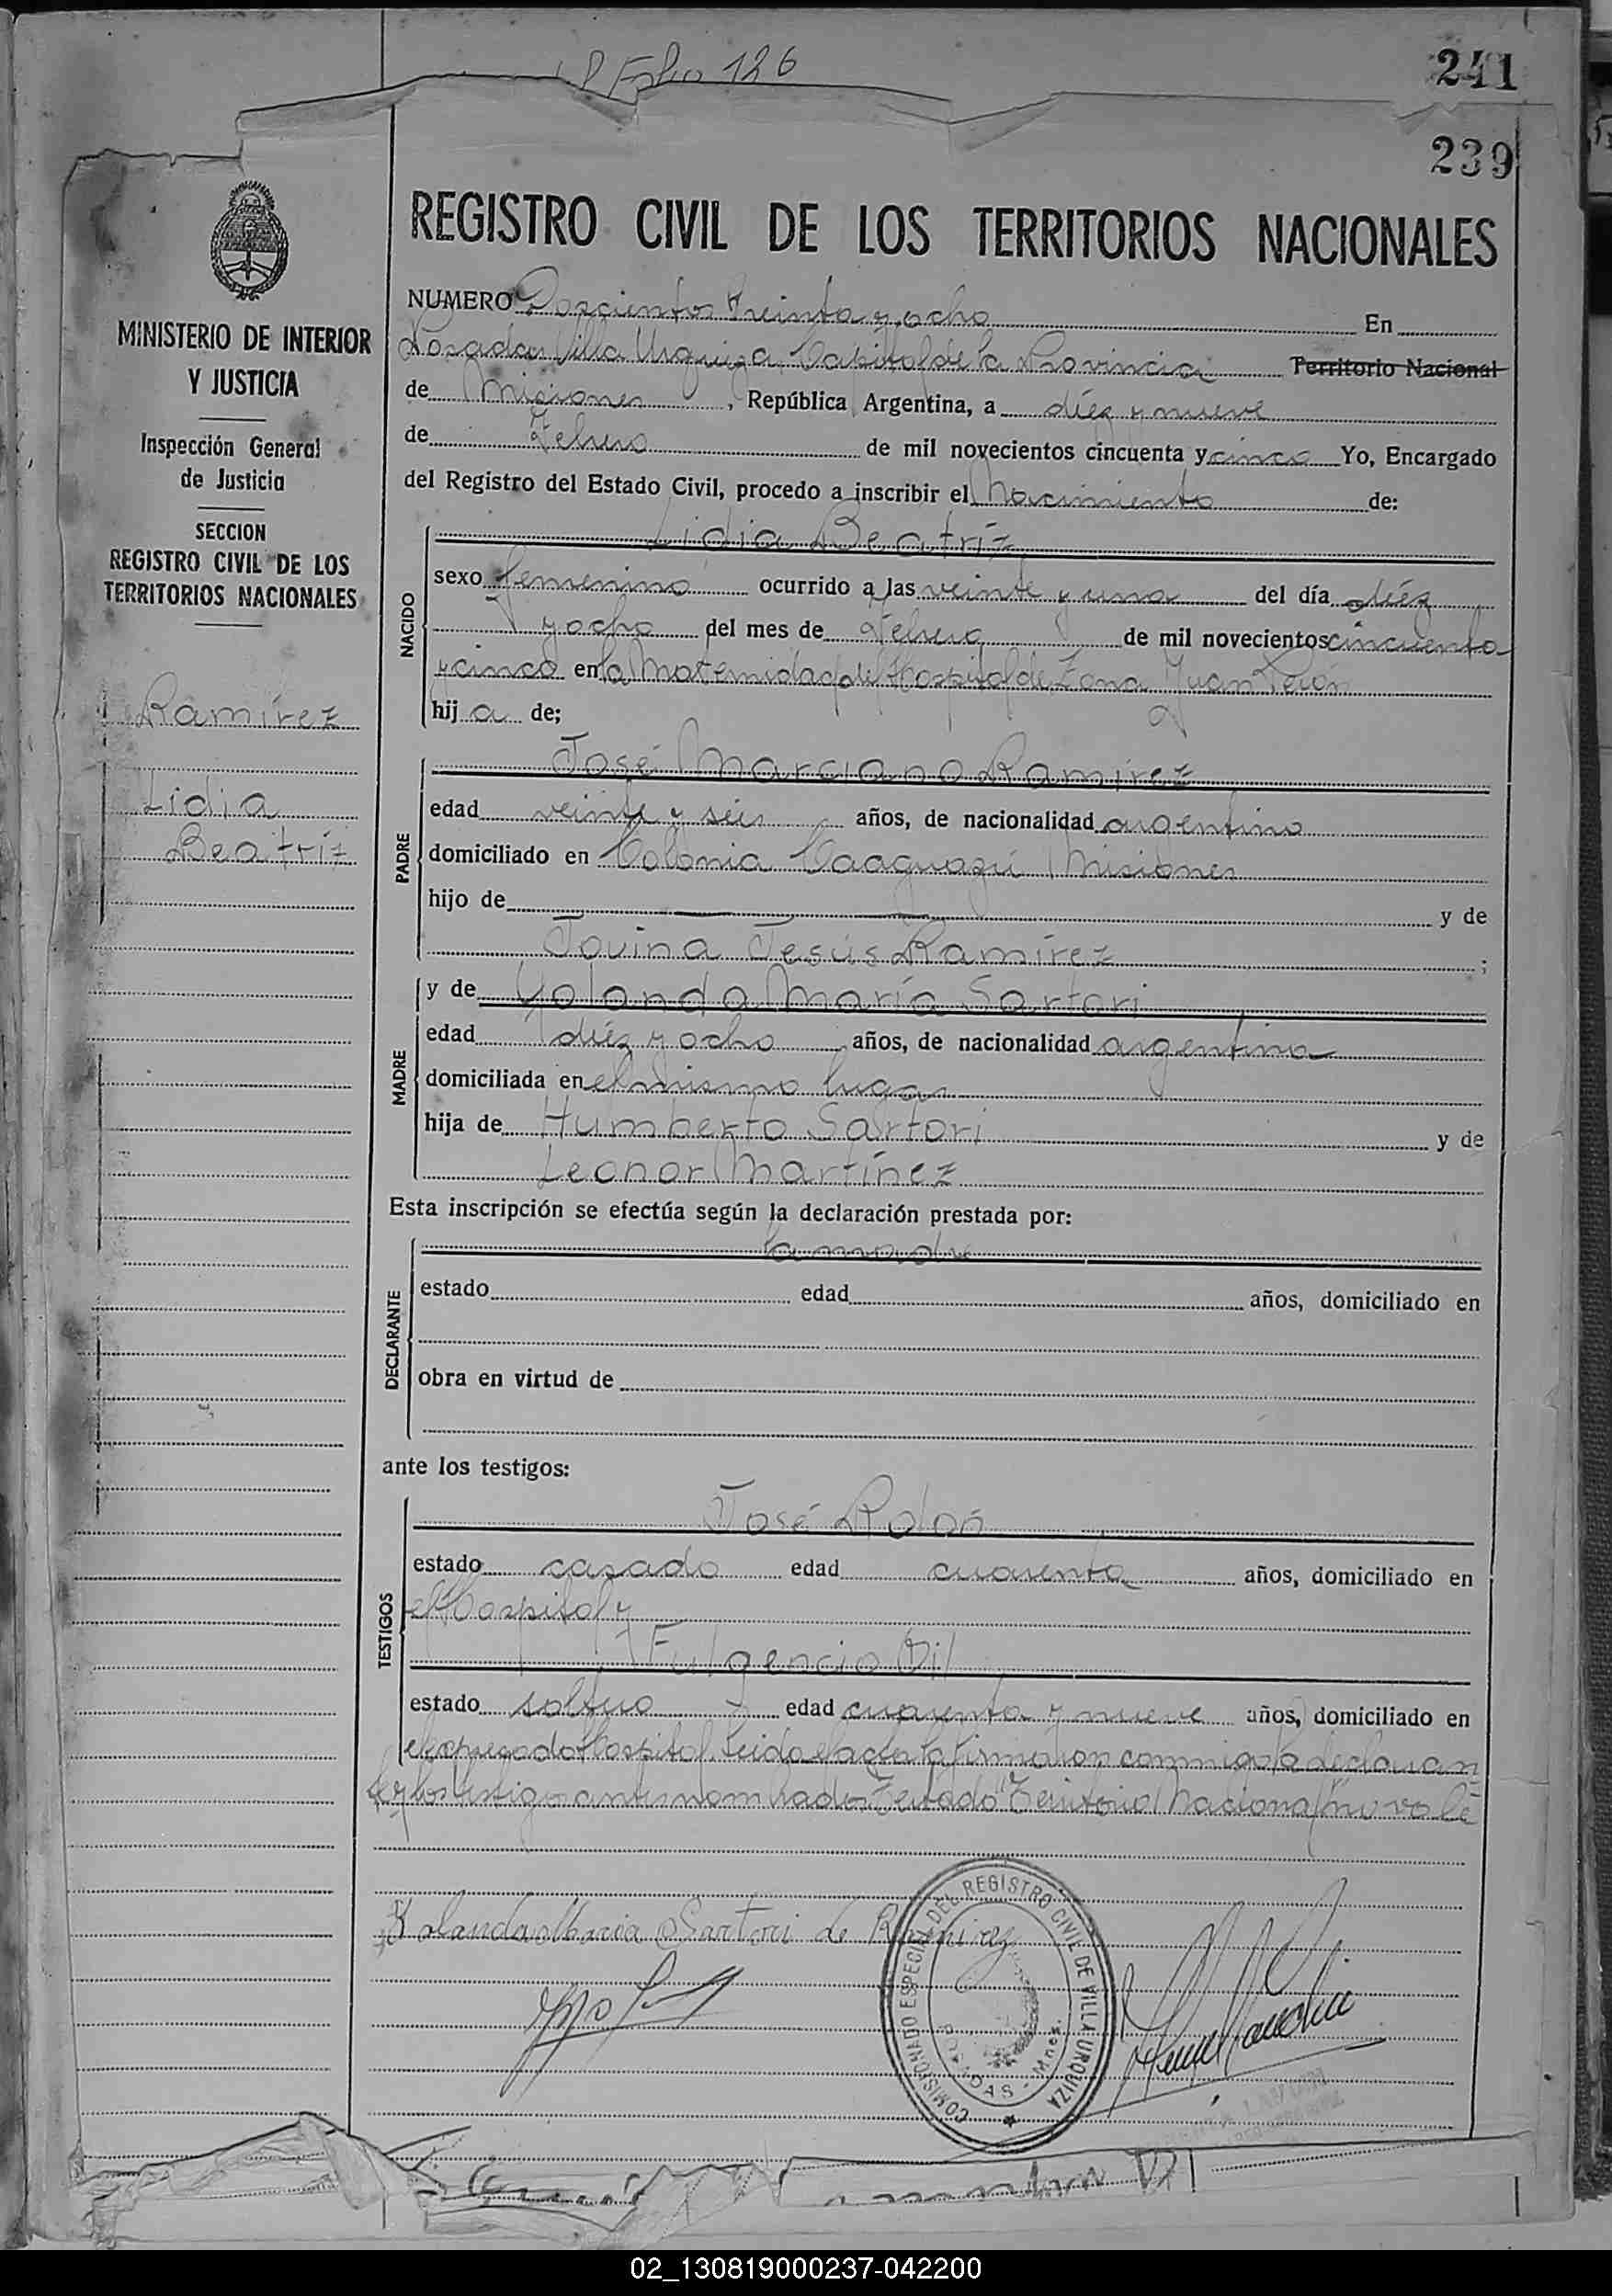 Folio 126
241
239
REGISTRO CIVIL DE LOS TERRITORIOS NACIONALES
MINISTERIO DE INTERIOR
Y JUSTICIA
Inspección General
de Justicia
SECCION
REGISTRO CIVIL DE LOS
TERRITORIOS NACIONALES
Ramírez
Lidia
Beatríz
NUMERO Doscientos treinta y ocho En
Posadas Villa Urquiza, Capital de la Provincia Territorio Nacional
de Misiones, República Argentina, a diéz y nueve
de Febrero de mil novecientos cincuenta y cinco Yo, Encargado
del Registro del Estado Civil, procedo a inscribir el Nacimiento de:
NACIDO
Lidia Beatríz
sexo femenino ocurrido a las veinte y una del día diéz
y ocho del mes de Febrero de mil novecientos cincuenta
y cinco en la Maternidad del Hospital de Zona Juan Perón
hij a de;
PADRE
José Marciano Ramírez
edad veinte y séis años, de nacionalidad argentino
domiciliado en Colonia Caaguazú Misiones
hijo de y de
Jovina Jesús Ramírez ;
MADRE
y de Yolanda María Sartori
edad diéz y ocho años, de nacionalidad argentina
domiciliada en el mismo lugar
hija de Humberto Sartori y de
Leonor Martínez
Esta inscripción se efectúa según la declaración prestada por:
DECLARANTE
la madre
estado edad años, domiciliado en
obra en virtud de
ante los testigos:
TESTIGOS
José Rolón
estado casado edad cuarenta años, domiciliado en
el Hospital y
Fulgencio Gil
estado soltero edad cuarenta y nueve años, domiciliado en
el expresado Hospital. Leida el acta la firmaron conmigo la declaran
te y los testigos antes nombrados. Testado "Territorio Nacional" no vale
Yolanda Maria Sartori de Ramirez
COMISIONADO ESPECIAL DEL REGISTRO CIVIL DE VILLA URQUIZA
POSADAS - Mnes.
02_130819000237-042200